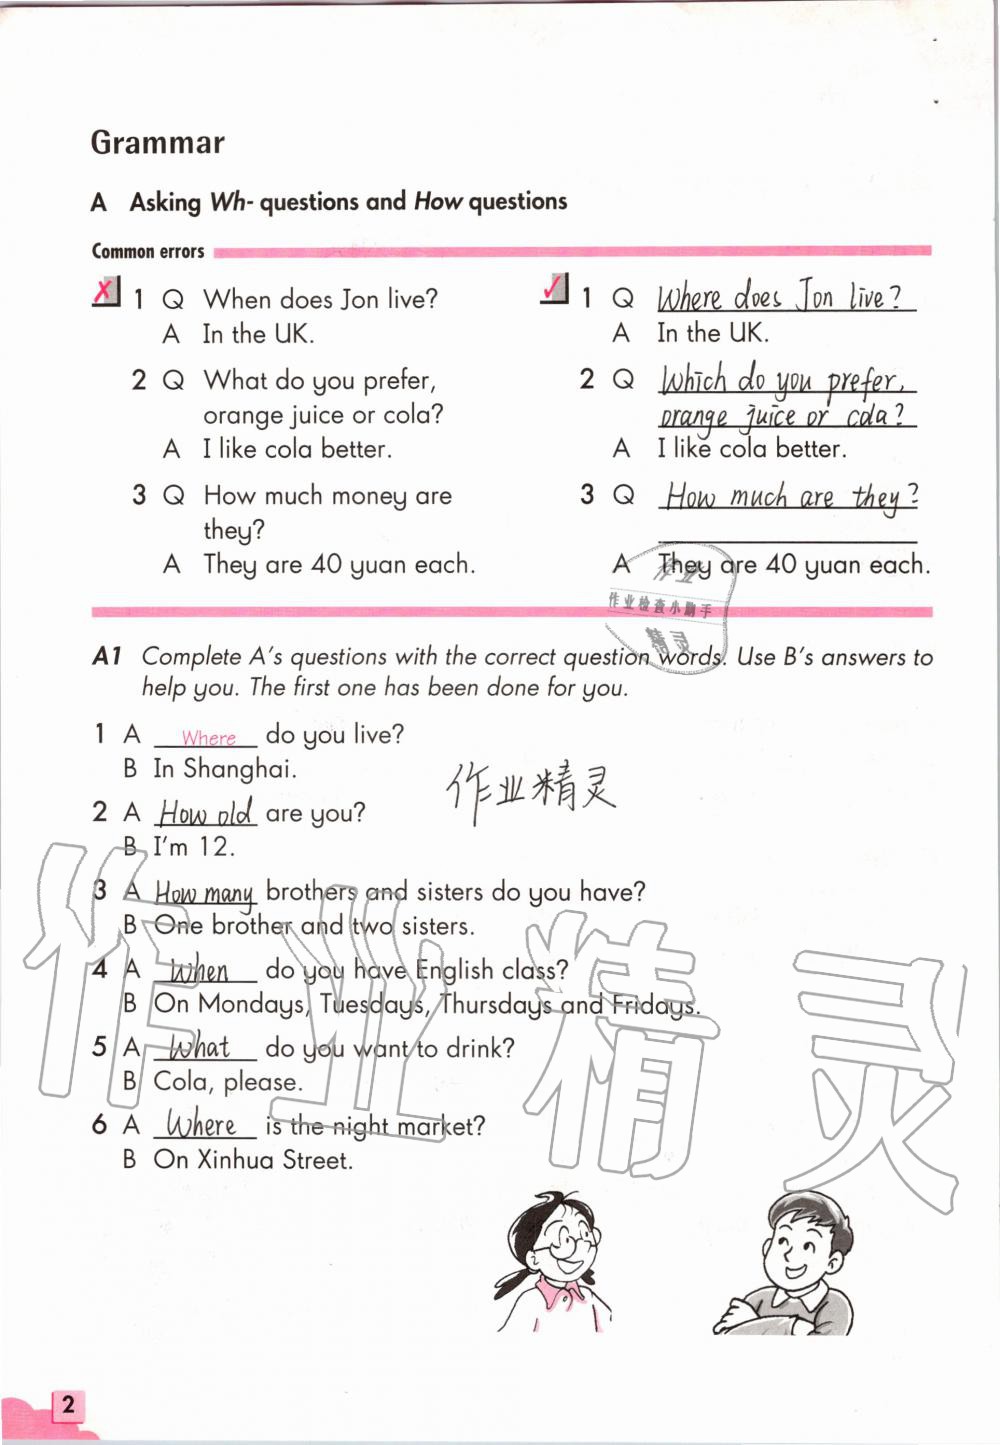 Grammar
A Asking Wh- questions and How questions
Common errors
✗ 1 Q When does Jon live?
A In the UK.
2 Q What do you prefer,
orange juice or cola?
A I like cola better.
3 Q How much money are
they?
A They are 40 yuan each.
✓ 1 Q Where does Jon live?
A In the UK.
2 Q Which do you prefer,
orange juice or cola?
A I like cola better.
3 Q How much are they?
A They are 40 yuan each.
作业
作业检查小助手
精灵
A1 Complete A's questions with the correct question words. Use B's answers to
help you. The first one has been done for you.
1 A Where do you live?
B In Shanghai.
作业精灵
2 A How old are you?
B I'm 12.
3 A How many brothers and sisters do you have?
B One brother and two sisters.
4 A When do you have English class?
B On Mondays, Tuesdays, Thursdays and Fridays.
5 A What do you want to drink?
B Cola, please.
6 A Where is the night market?
B On Xinhua Street.
作业精灵
2